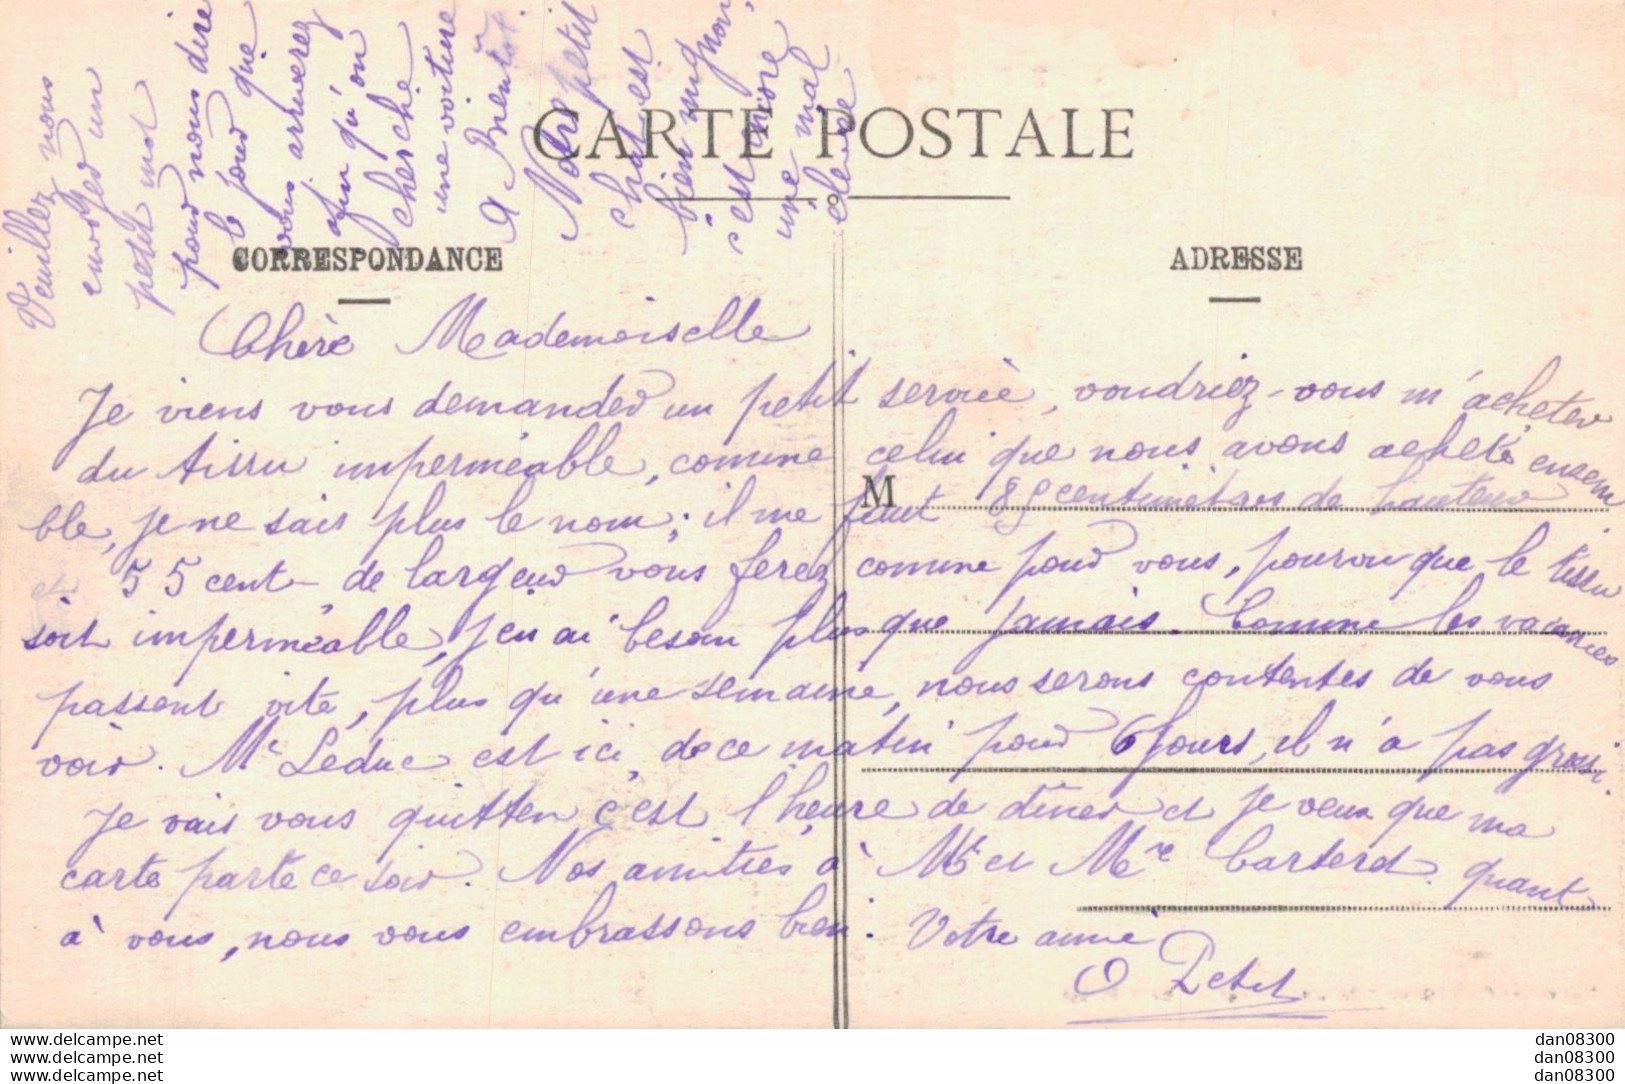 Veuillez nous
envoyer un
petit mot
pour nous dire
le jour que
vous arriverez
afin qu'on
cherche
une voiture
A Bientot.
Notre petit
chat est
bien mignon,
c'est encore
une mal
eleve
CARTE POSTALE
CORRESPONDANCE
ADRESSE
Chère Mademoiselle
Je viens vous demander un petit service, voudriez-vous m'acheter
du tissu imperméable, comme celui que nous avons acheté ensem
ble, je ne sais plus le nom; il me faut M 85 centimètres de hauteur
et 55 cent- de largeur vous ferez comme pour vous, pourvu que le tissu
soit imperméable, j'en ai besoin plus que jamais. Comme les vacances
passent vite, plus qu'une semaine, nous serons contentes de vous
voir. Mr Leduc est ici, de ce matin pour 6 jours, il n'a pas grossi.
Je vais vous quitter c'est l'heure de dîner et je veux que ma
carte parte ce soir. Nos amitiés à Mr et Mme Carterel. quant
à vous, nous vous embrassons bien. Votre amie
O Petel
www.delcampe.net
www.delcampe.net
www.delcampe.net
dan08300
dan08300
dan08300